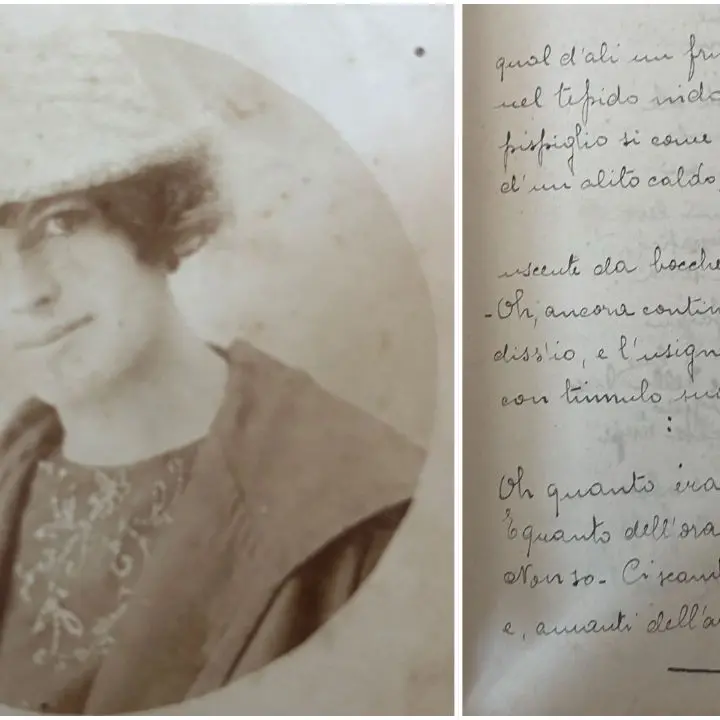 qual d'ali un fru
nel tepido nido
pispiglio sì come
d'un alito caldo
uscente da bocche
-Oh, ancora contin
diss'io, e l'usign
con tinnulo suo
:
Oh quanto era
E quanto dell'ora
Non so- Ci scam
e, amanti dell'a